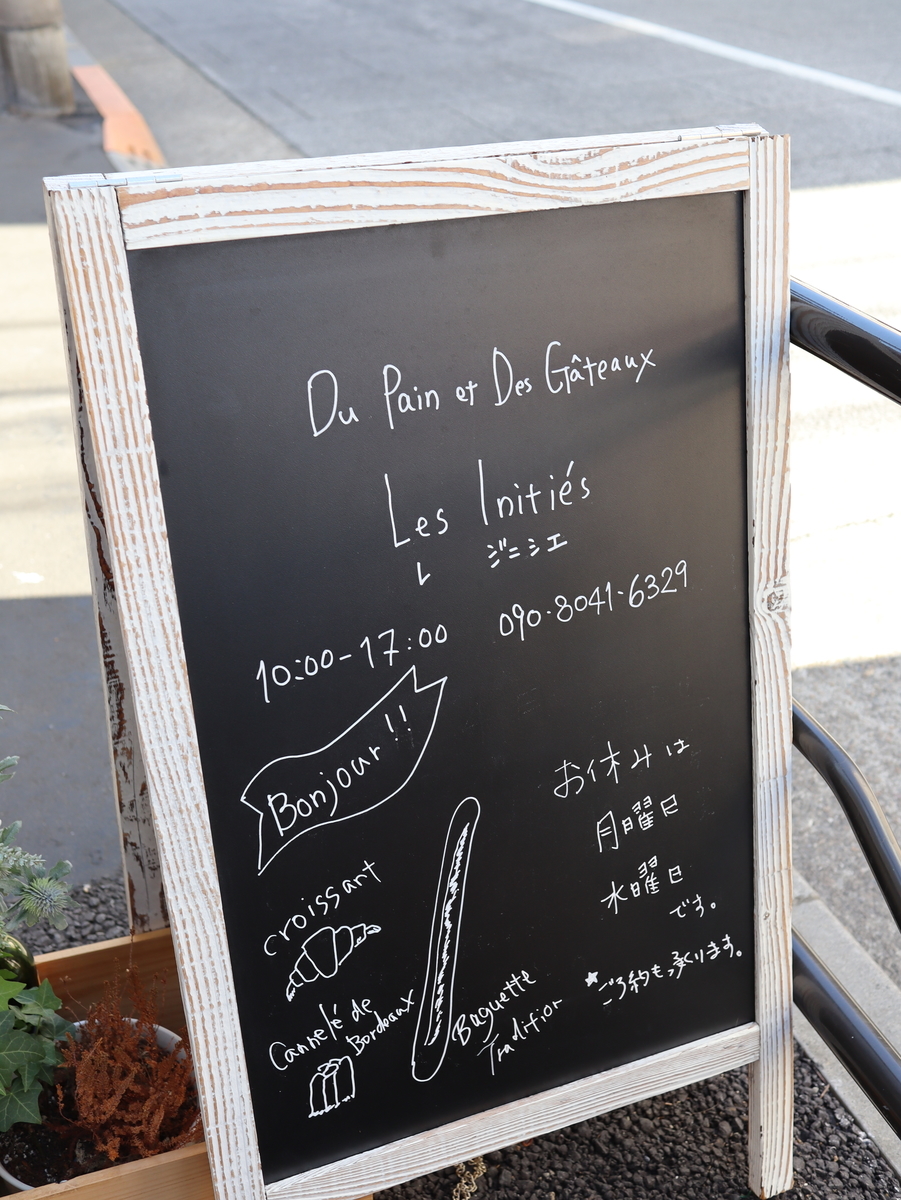 Du Pain et Des Gâteaux
Les Initiés
レ ジニシエ
10:00-17:00 090-8041-6329
Bonjour!!
お休みは
月曜日
水曜日
です。
croissant
Cannelé de
Bordeaux
Baguette
Tradition
★ご予約も承ります。